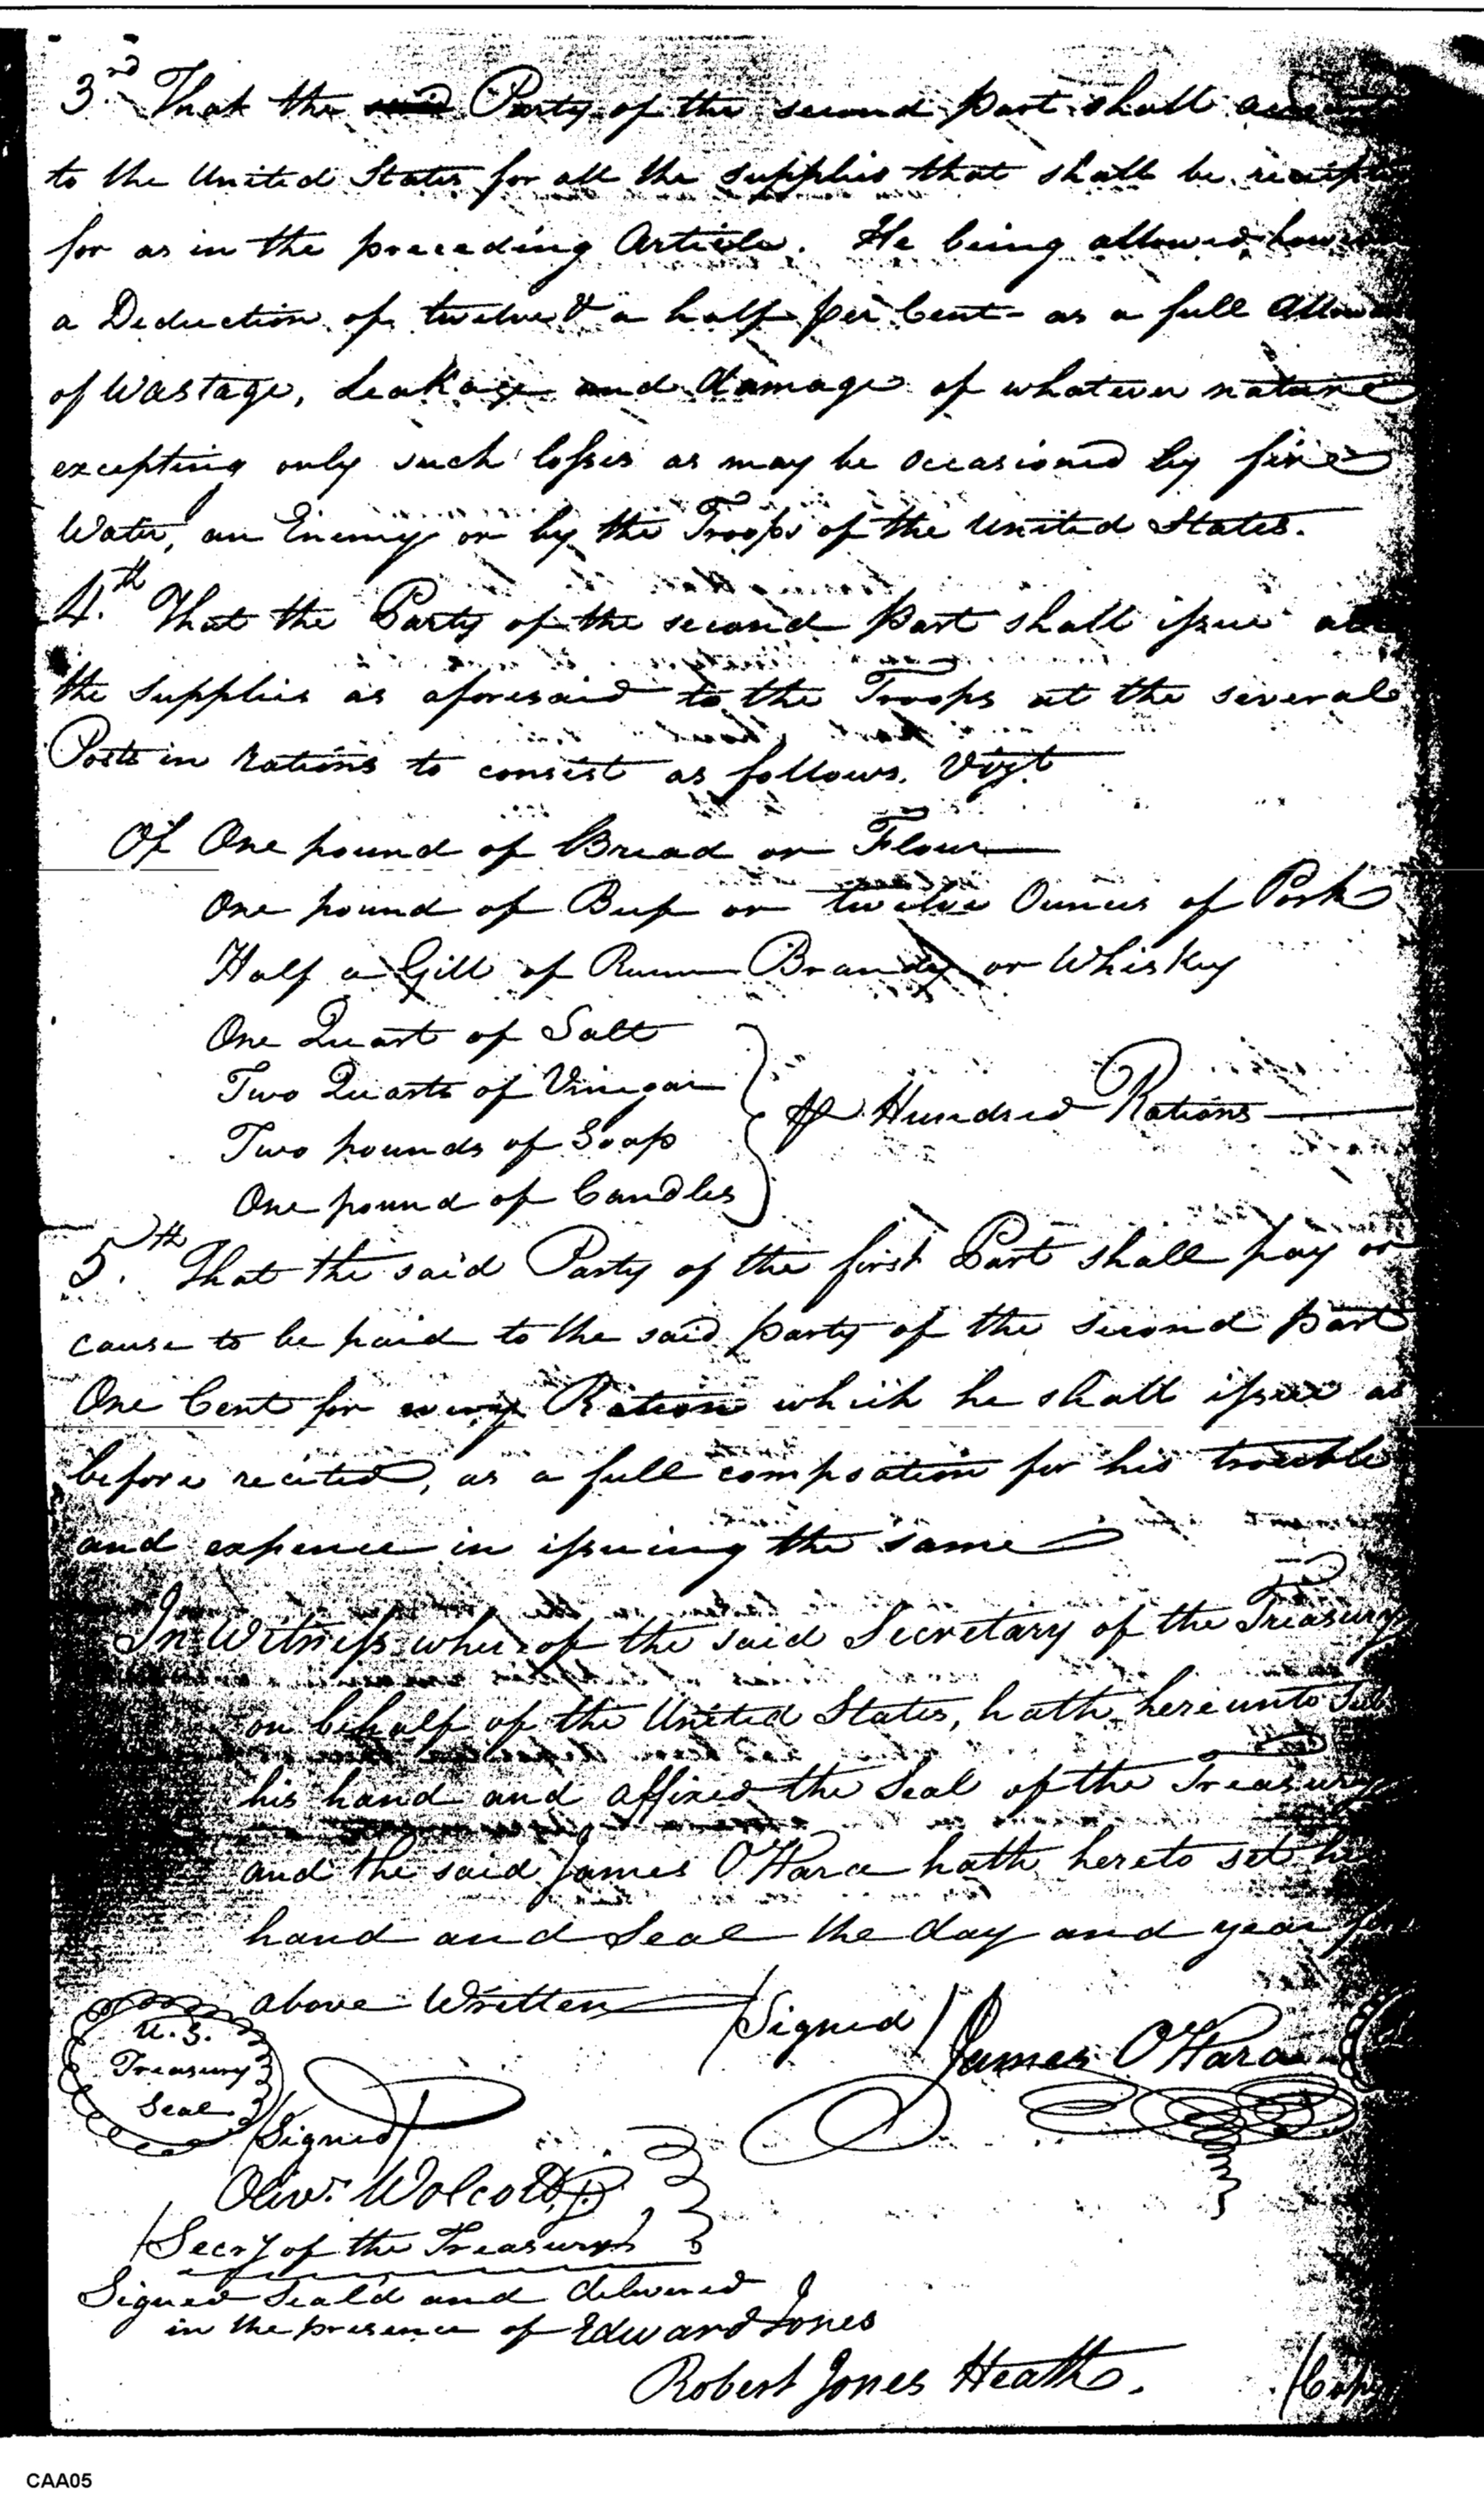 3.rd That the said Party of the second part shall
to the United States for all the supplies that shall be
for as in the preceding Article. He being allowed
a Deduction of twelve & a half per Cent as a full
of Wastage, Leakage and damage of whatever nature
excepting only such losses as may be occasioned by fire
Water, an Enemy or by the Troops of the United States.
4.th That the Party of the second part shall issue
the supplies as aforesaid to the Troops at the several
Posts in rations to consist as follows. Vizt
Of One pound of Bread or Flour
One pound of Beef or twelve Ounces of Pork
Half a Gill of Rum Brandy or Whiskey
One Quart of Salt
Two Quarts of Vinegar
⅌ Hundred Rations
Two pounds of Soap
One pound of Candles
5.th That the said Party of the first Part shall pay or
cause to be paid to the said party of the second part
One Cent for every Ration which he shall issue as
before recited, as a full compsation for his trouble
and expence in issuing the same
In Witness whereof the said Secretary of the Treasury
on behalf of the United States, hath hereunto Sub
his hand and affixed the Seal of the Treasury
and the said James O'Hara hath hereto set
hand and Seal the day and year
above Written
/Signed/ James O'Hara
U.S.
Treasury
Seal
/Signed/
Oliv.r Wolcott
/Secry of the Treasury/
Signed Seald and delivered
in the presence of Edward Jones
Robert Jones Heath.
/Copy
CAA05